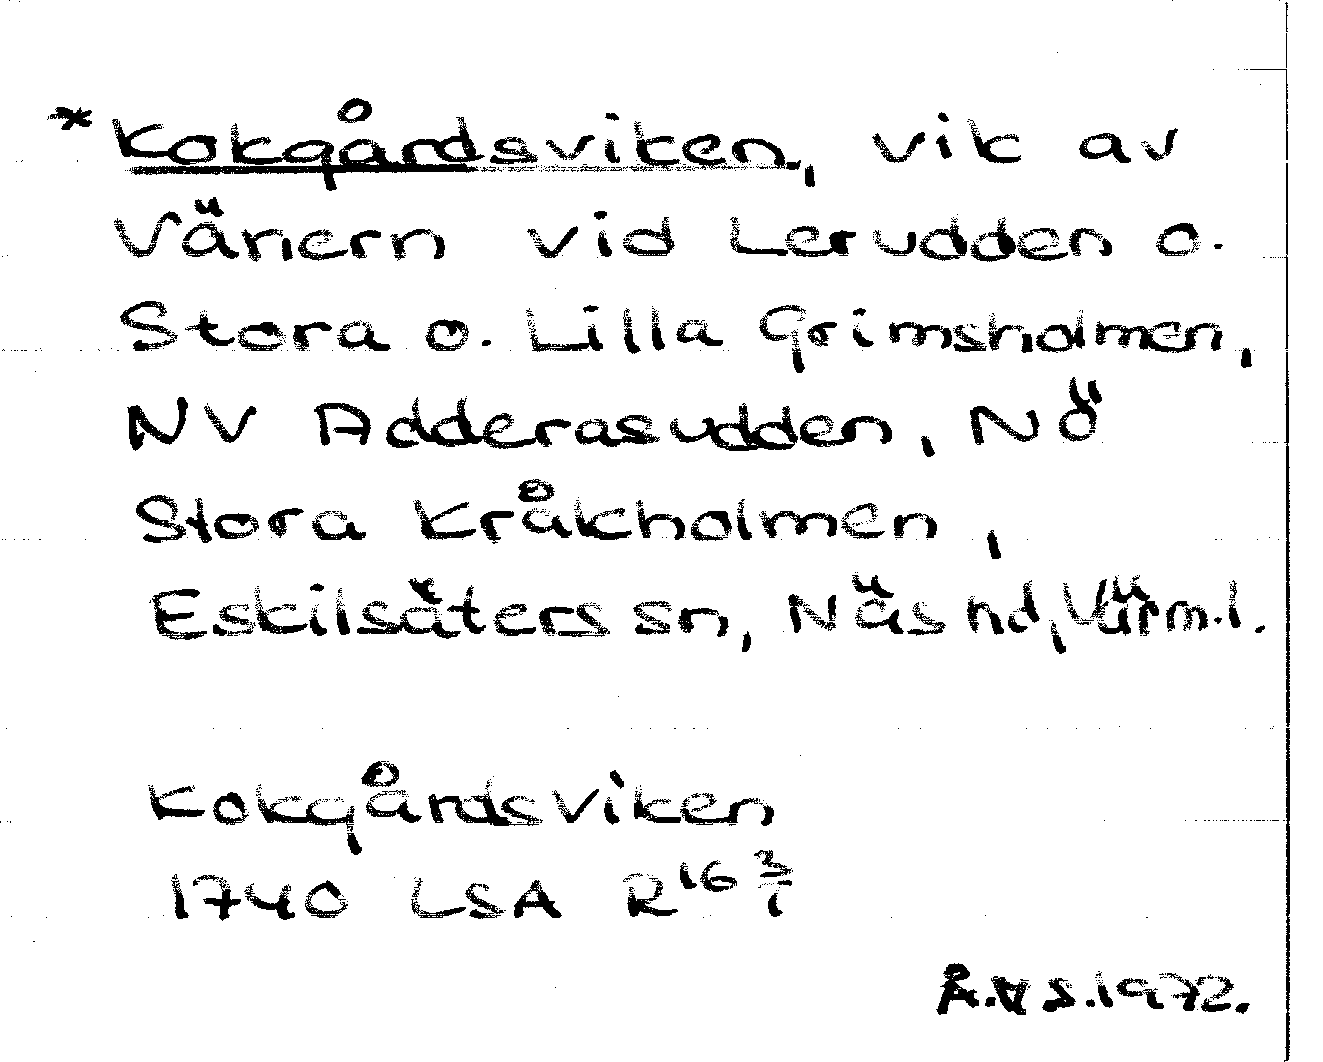 * Kokgårdsviken, vik av
Vänern vid Lerudden o.
Stora o. Lilla Grimsholmen,
NV Adderasudden, NÖ
Stora Kråkholmen,
Eskilsäters sn, Näs hd, Värml.
Kokgårdsviken
1740 LSA R16 3/1
Å.H S. 1972.